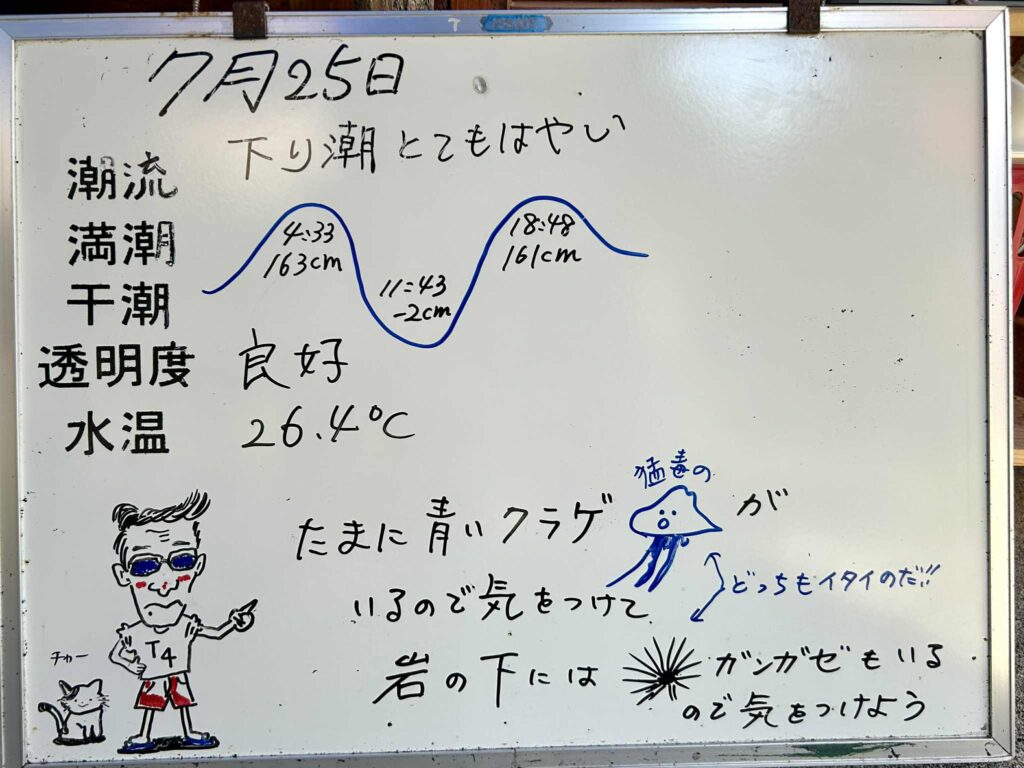 7月25日
潮流 下り潮 とてもはやい
満潮 4:33 163cm 18:48 161cm
干潮 11:43 -2cm
透明度 良好
水温 26.4℃
猛毒の
たまに青いクラゲが
いるので気をつけて
どっちもイタイのだ!!
岩の下には ガンガゼもいる
ので気をつけよう
T4
チャー